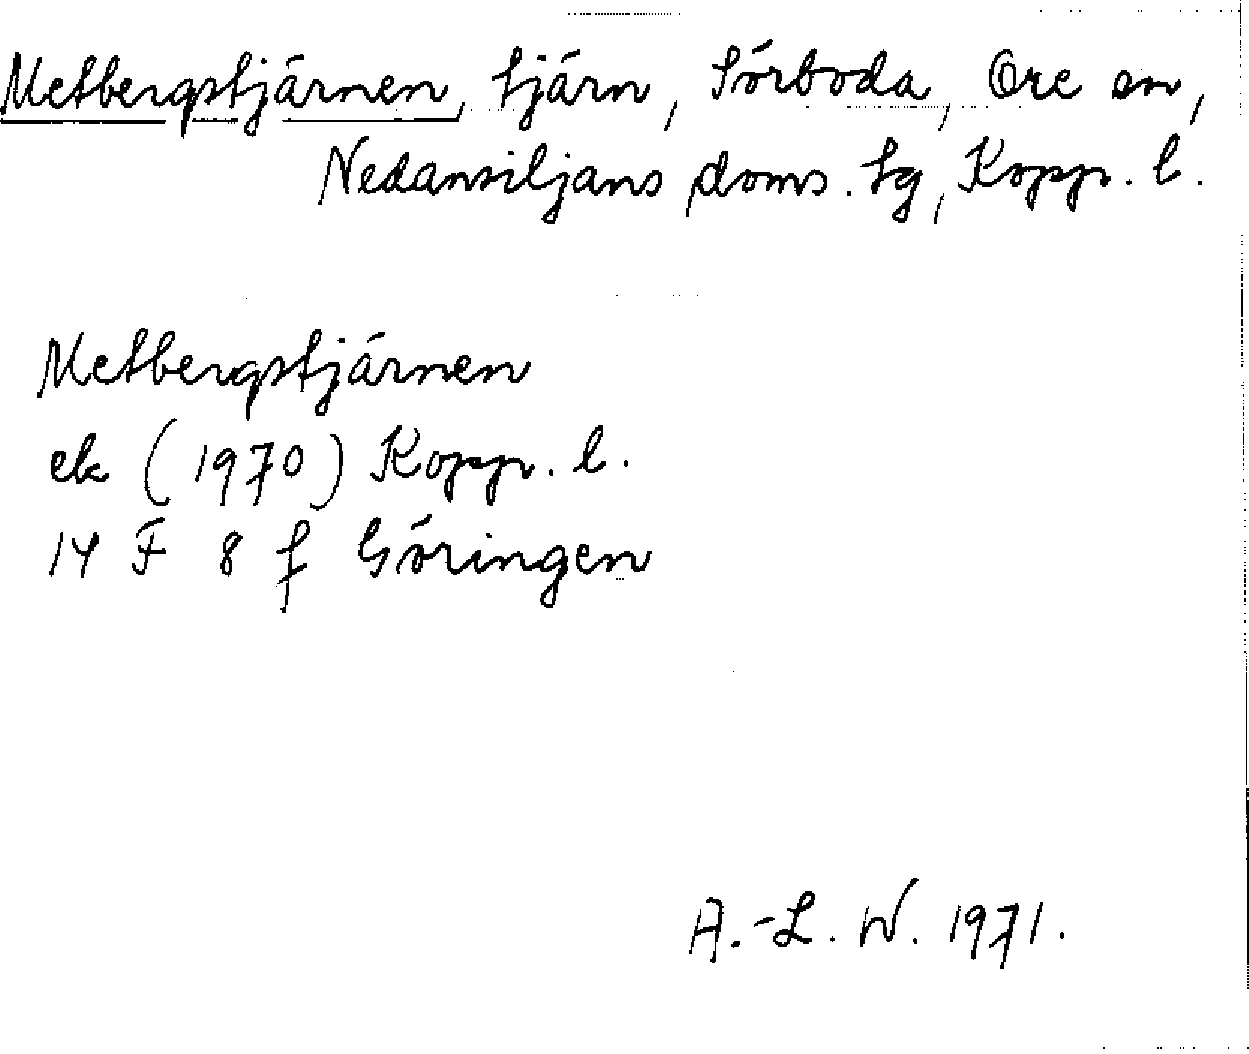 Metbergstjärnen, tjärn, Sörboda, Ore sn,
Nedansiljans doms. tg, Kopp. l.
Metbergstjärnen
ek (1970) Kopp. l.
14 F 8 f Göringen
A.-L. W. 1971.